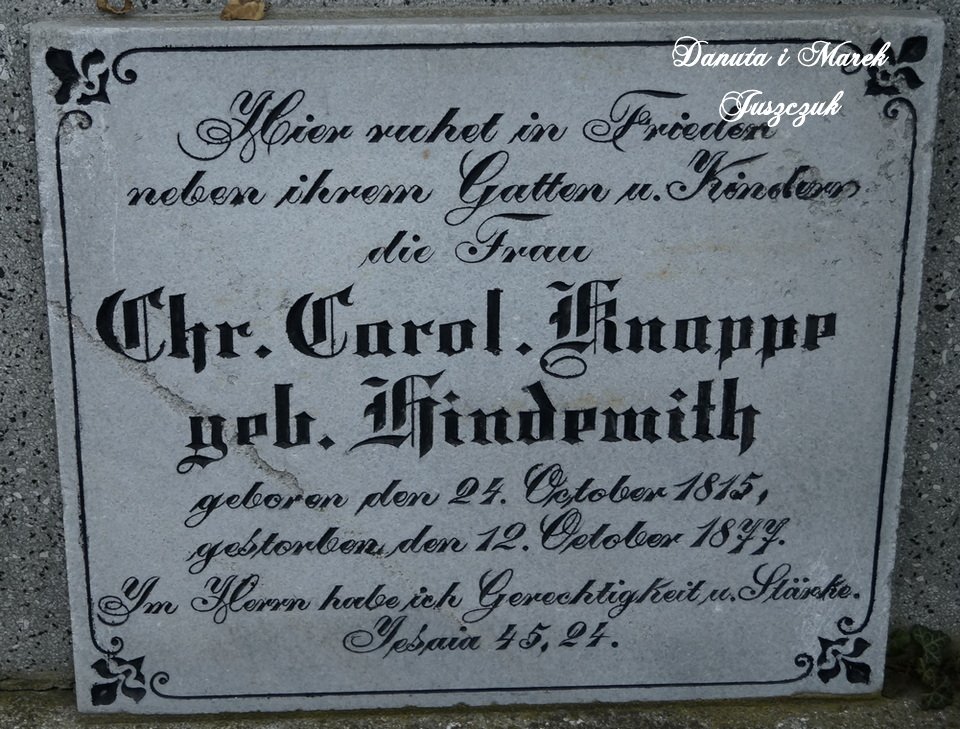 Danuta i Marek
Juszczuk
Hier ruhet in Frieden
neben ihrem Gatten u. Kindern
die Frau
Chr. Carol. Knappe
geb. Hindemith
geboren den 24. October 1815,
gestorben den 12. October 1877.
Im Herrn habe ich Gerechtigkeit u. Stärke.
Jesaia 45, 24.